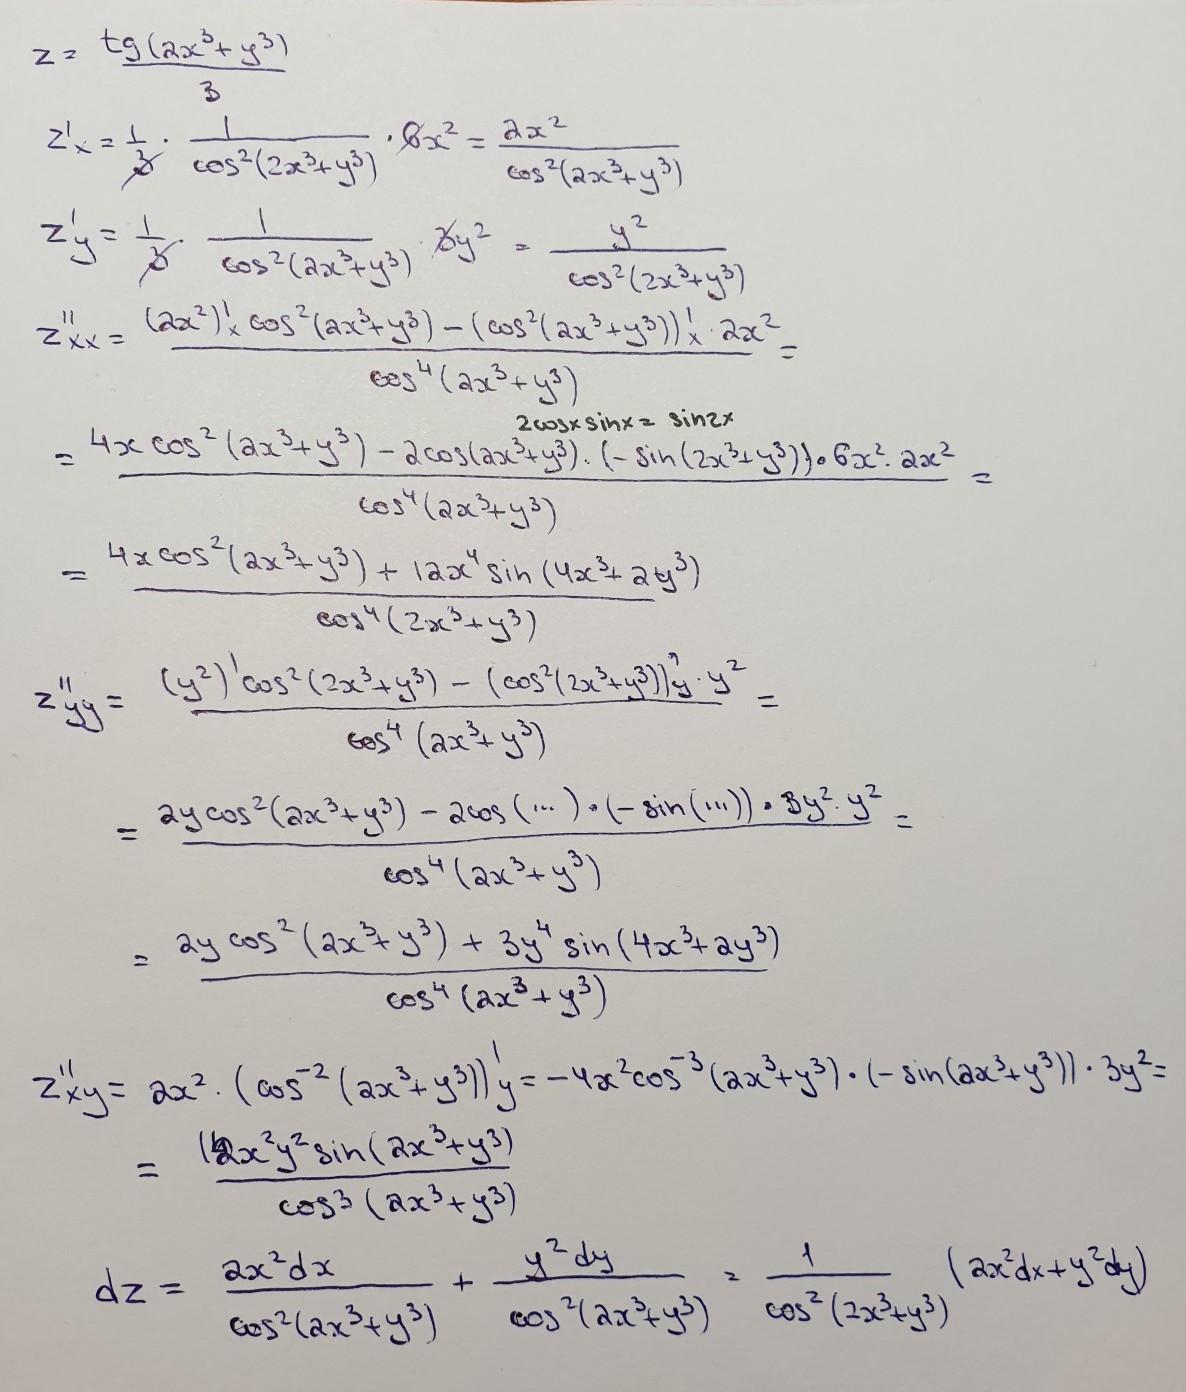 z = tg(2x³+y³) / 3
z'x = 1/3 · 1/cos²(2x³+y³) · 6x² = 2x²/cos²(2x³+y³)
z'y = 1/3 · 1/cos²(2x³+y³) · 3y² = y²/cos²(2x³+y³)
z''xx = ((2x²)'x cos²(2x³+y³) – (cos²(2x³+y³))'x · 2x²) / cos⁴(2x³+y³) =
2cosx sinx = sin2x
= (4x cos²(2x³+y³) – 2cos(2x³+y³) · (–sin(2x³+y³)) · 6x² · 2x²) / cos⁴(2x³+y³) =
= (4x cos²(2x³+y³) + 12x⁴ sin(4x³+2y³)) / cos⁴(2x³+y³)
z''yy = ((y²)' cos²(2x³+y³) – (cos²(2x³+y³))'y · y²) / cos⁴(2x³+y³) =
= (2y cos²(2x³+y³) – 2cos(...) · (–sin(...)) · 3y² · y²) / cos⁴(2x³+y³) =
= (2y cos²(2x³+y³) + 3y⁴ sin(4x³+2y³)) / cos⁴(2x³+y³)
z''xy = 2x² · (cos⁻²(2x³+y³))'y = –4x² cos⁻³(2x³+y³) · (–sin(2x³+y³)) · 3y² =
= 12x²y² sin(2x³+y³) / cos³(2x³+y³)
dz = 2x²dx/cos²(2x³+y³) + y²dy/cos²(2x³+y³) = 1/cos²(2x³+y³) (2x²dx+y²dy)